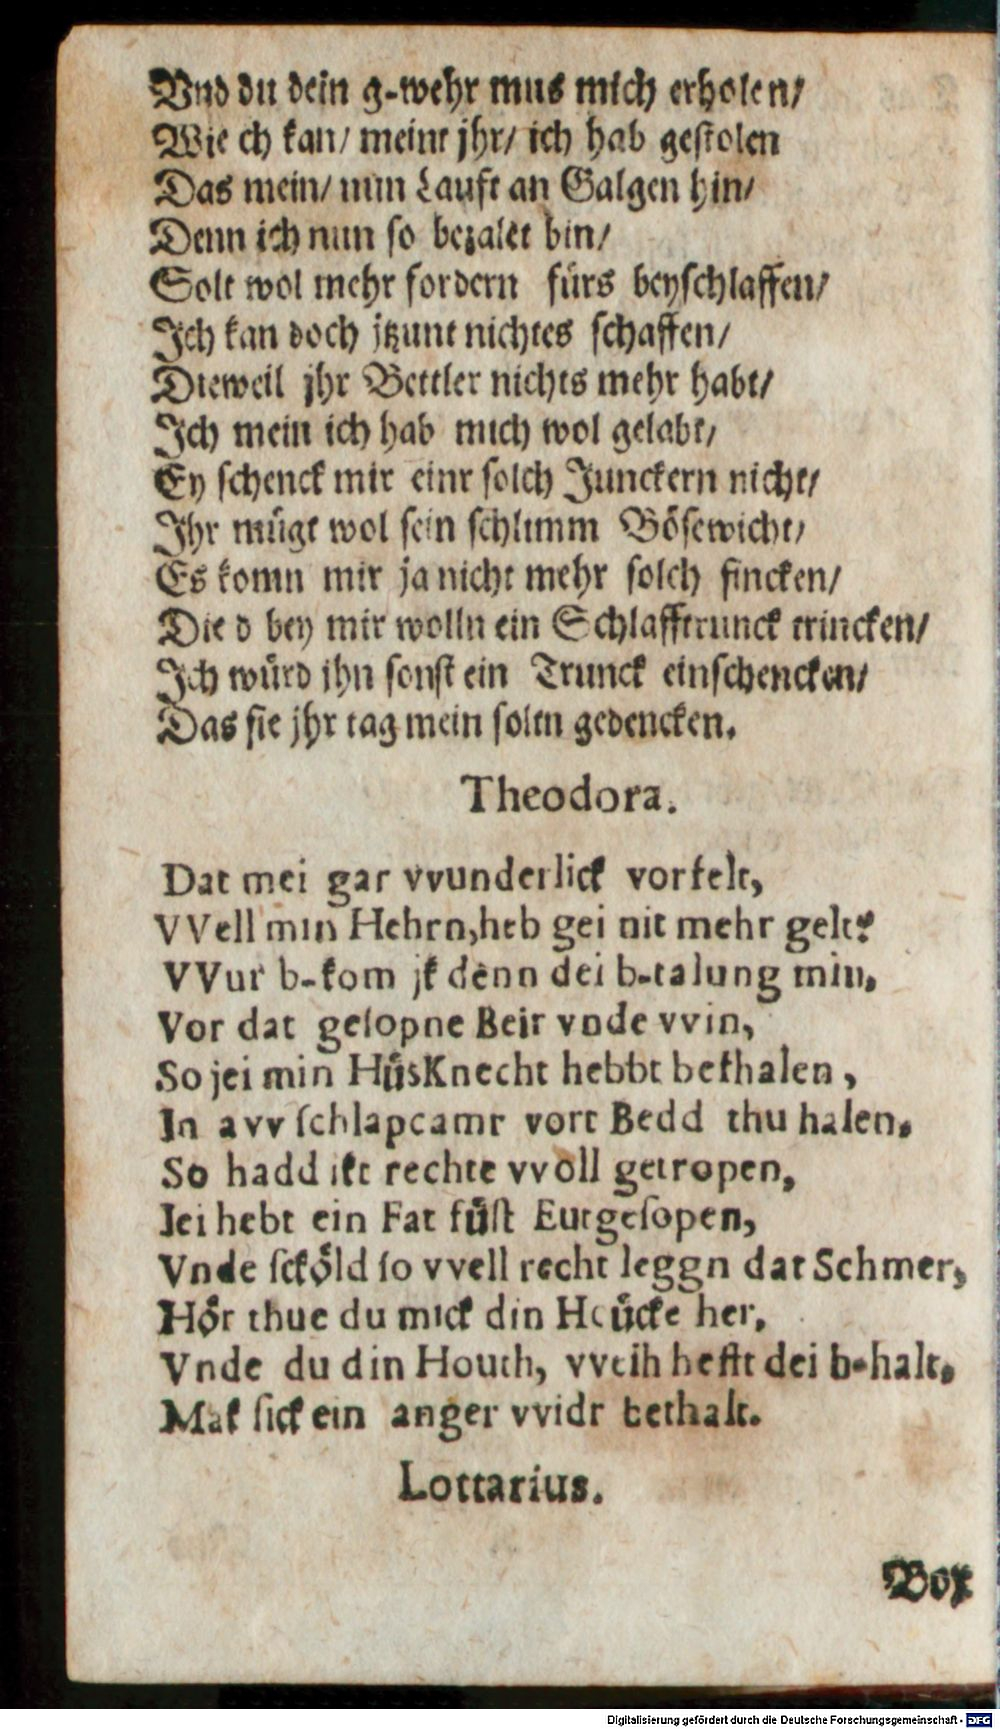 Vnd du dein g-wehr mus mich erholen/
Wie ch kan/ meint jhr/ ich hab gestolen
Das mein/ nun Lauft an Galgen hin/
Denn ich nun so bezalet bin/
Solt wol mehr fordern fürs beyschlaffen/
Ich kan doch jtzunt nichtes schaffen/
Dieweil jhr Bettler nichts mehr habt/
Ich mein ich hab mich wol gelabt/
Ey schenck mir einr solch Junckern nicht/
Ihr mügt wol sein schlimm Bösewicht/
Es komn mir ja nicht mehr solch fincken/
Die d bey mir wolln ein Schlafftrunck trincken/
Ich würd ihn sonst ein Trunck einschencken/
Das sie jhr tag mein soltn gedencken.
Theodora.
Dat mei gar vvunderlick vorkelt,
VVell min Hehrn, heb gei nit mehr gelt?
VVur b-kom jk denn dei b-talung min,
Vor dat gesopne Beir vnde vvin,
So jei min HůsKnecht hebbt bethalen,
In avv schlapcamr vort Bedd thu halen,
So hadd ikt rechte vvoll getropen,
Jei hebt ein Fat fůst Eutgesopen,
Vnde scköld so vvell recht leggn dat Schmer,
Hör thue du mick din Heücke her,
Vnde du din Houth, vveih hefft dei b-halt,
Mak sick ein anger vvidr bethalt.
Lottarius.
Box
Digitalisierung gefördert durch die Deutsche Forschungsgemeinschaft - DFG